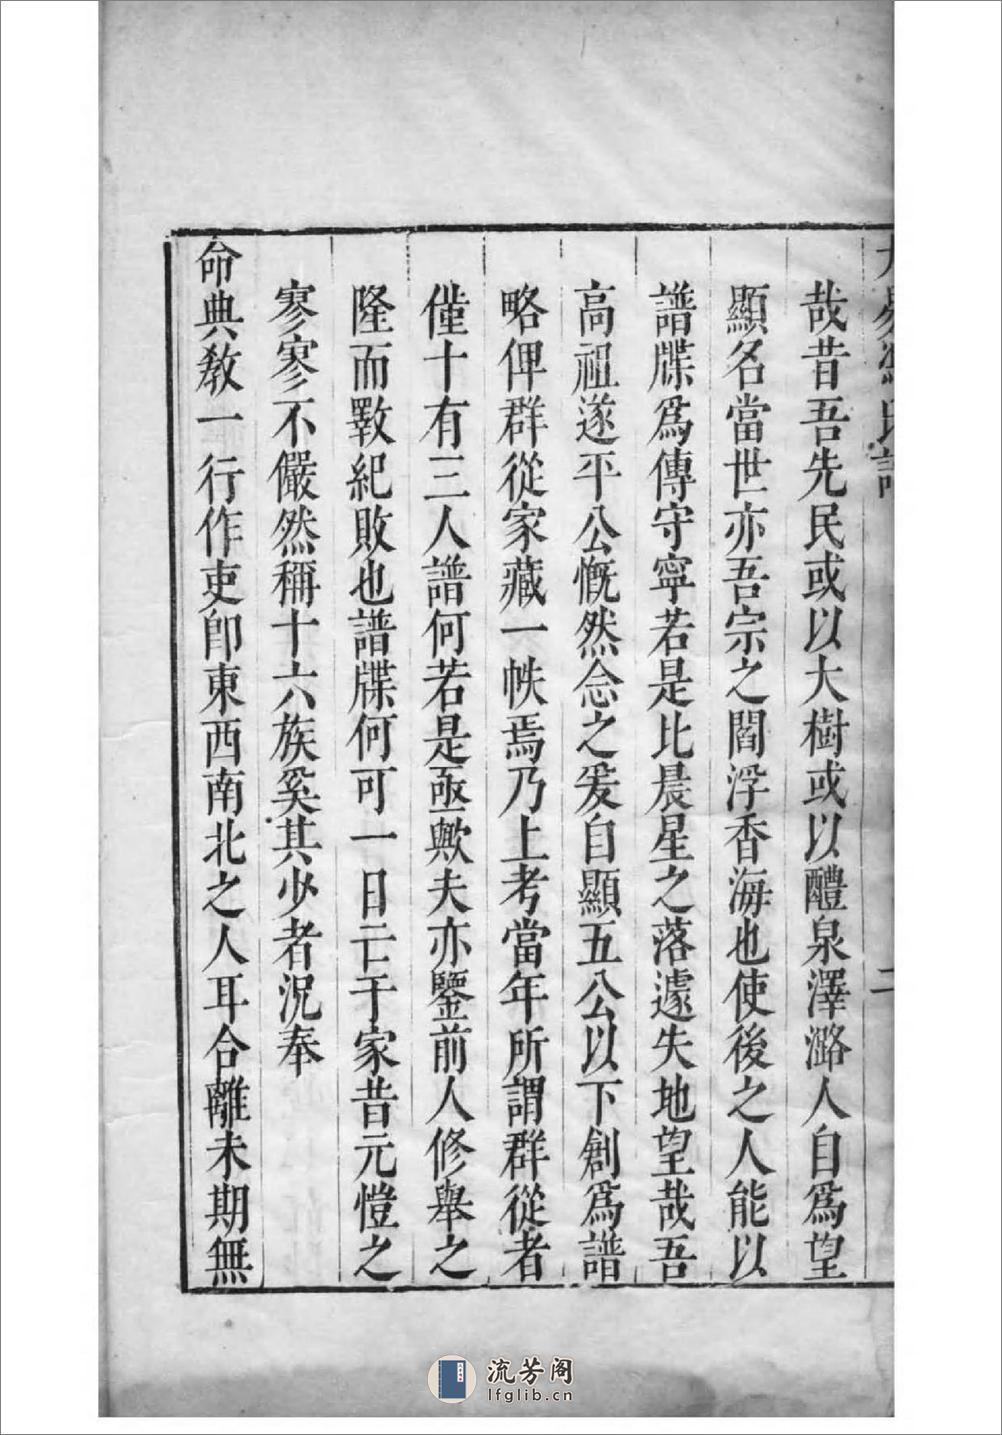 氏
二
哉昔吾先民或以大樹或以醴泉澤潞人自爲望
顯名當世亦吾宗之閻浮香海也使後之人能以
譜牒爲傳守寧若是比晨星之落遽失地望哉吾
高祖遂平公慨然念之爰自顯五公以下創爲譜
略俾群從家藏一帙焉乃上考當年所謂群從者
僅十有三人譜何若是亟歟夫亦鑒前人修舉之
隆而斁紀敗也譜牒何可一日亡于家昔元愷之
寥寥不儼然稱十六族奚其少者況奉
命典教一行作吏卽東西南北之人耳合離未期無
流芳阁
lfglib.cn